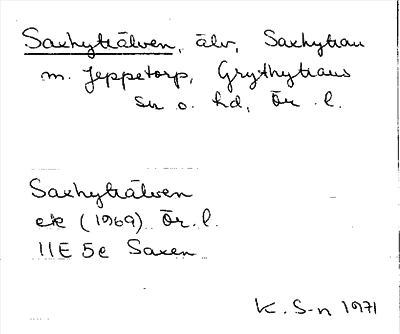 Saxhyttälven, älv, Saxhyttan
m. Jeppetorp, Grythyttans
sn o. hd, Ör. l.
Saxhyttälven
ek (1969) Ör. l.
11E 5e Saxen
K. S-n 1971